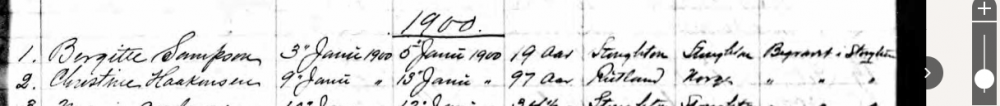 1900.
1. Bergitte Sampson 3" Janu 1900 5" Janu 1900 19 Aar Stoughton Stoughton Begravet i Stoughton
2. Christine Haakinsen 9" Janu " 13" Janu " 97 Aar Rutland Norge " " "